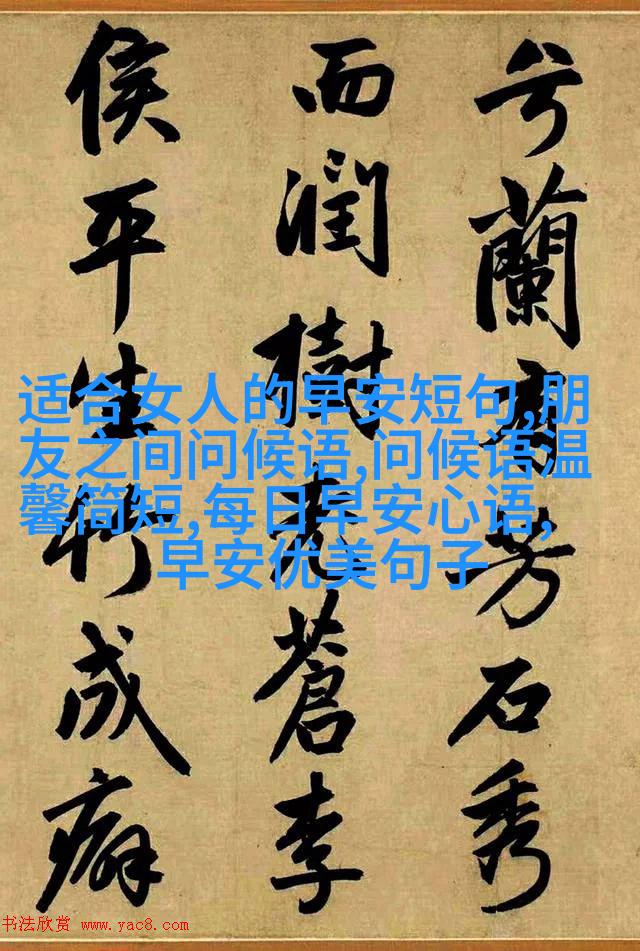 兮蘭有芳石秀
而潤樹老蒼李
侯平生竹成癖
适合女人的早安短句,朋
友之间问候语,问候语温
馨简短,每日早安心语,
早安优美句子
书法欣赏 www.yac8.com